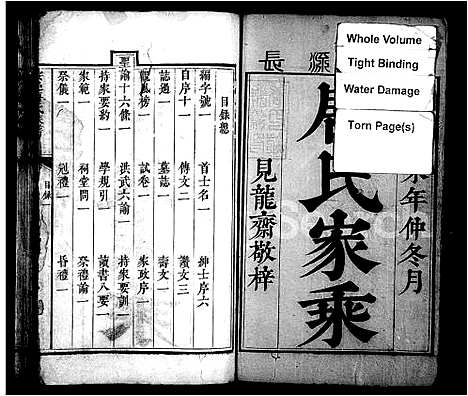 Whole Volume
Tight Binding
Water Damage
Torn Page(s)
源長
年仲冬月
周氏家乘
見龍齋敬梓
目錄總
編字號一 首士名一 紳士序六
自序十一 傳文二 讚文三
誌過一 墓誌一 壽文一
觀風榜一 試卷一 家政序一
聖諭十六條一 洪武六諭一 持家要訓一
持家要約一 學規引一 讀書八要一
家範一 祠堂問一 祭禮論一
祭儀一 冠禮一 昏禮一
目錄